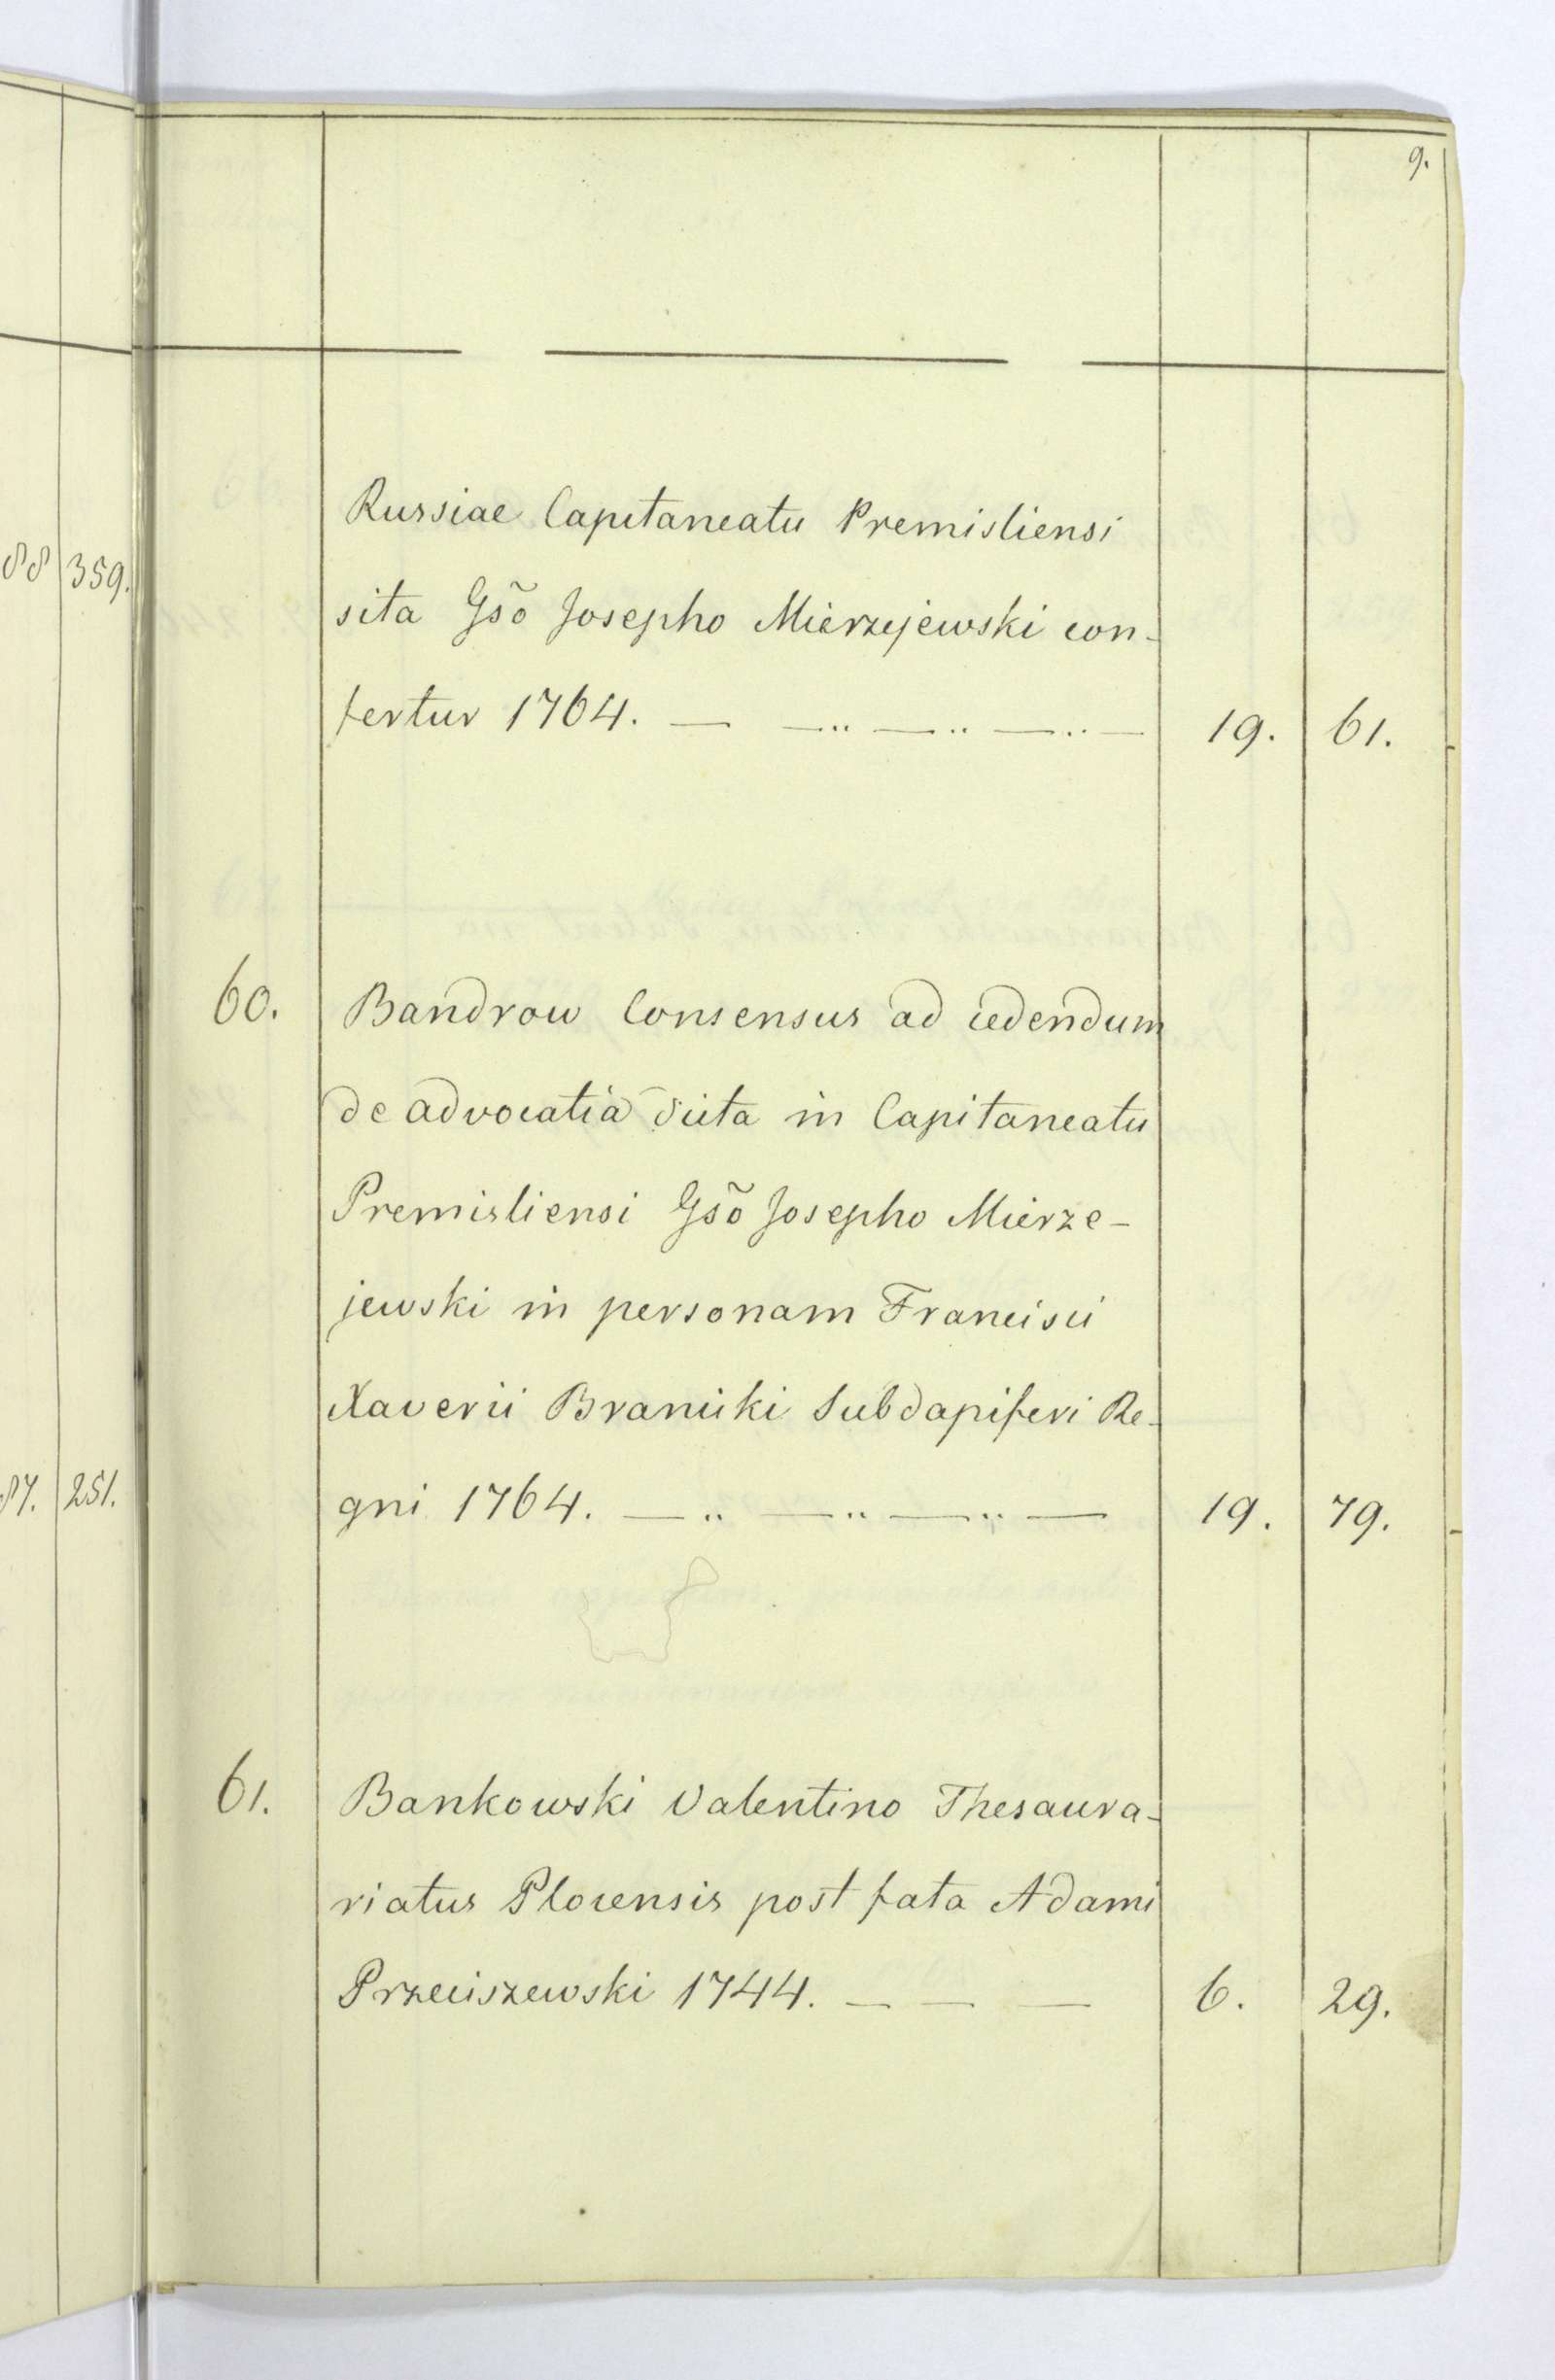 9.
Russiae Capitaneatu Premisliensi
sita Gsõ Josepho Mierzejewski con-
fertur 1764. — —..—..—..— 19. 61.
88 359.
60. Bandrow Consensus ad cedendum
de advocatia dicta in Capitaneatu
Premisliensi Gsõ Josepho Mierze-
jewski in personam Francisci
Xaverii Branicki Subdapiferi Re-
gni 1764. —..—..—..— 19. 79.
87. 251.
61. Bankowski Valentino Thesaura-
riatus Plocensis post fata Adami
Przeciszewski 1744. — — — 6. 29.